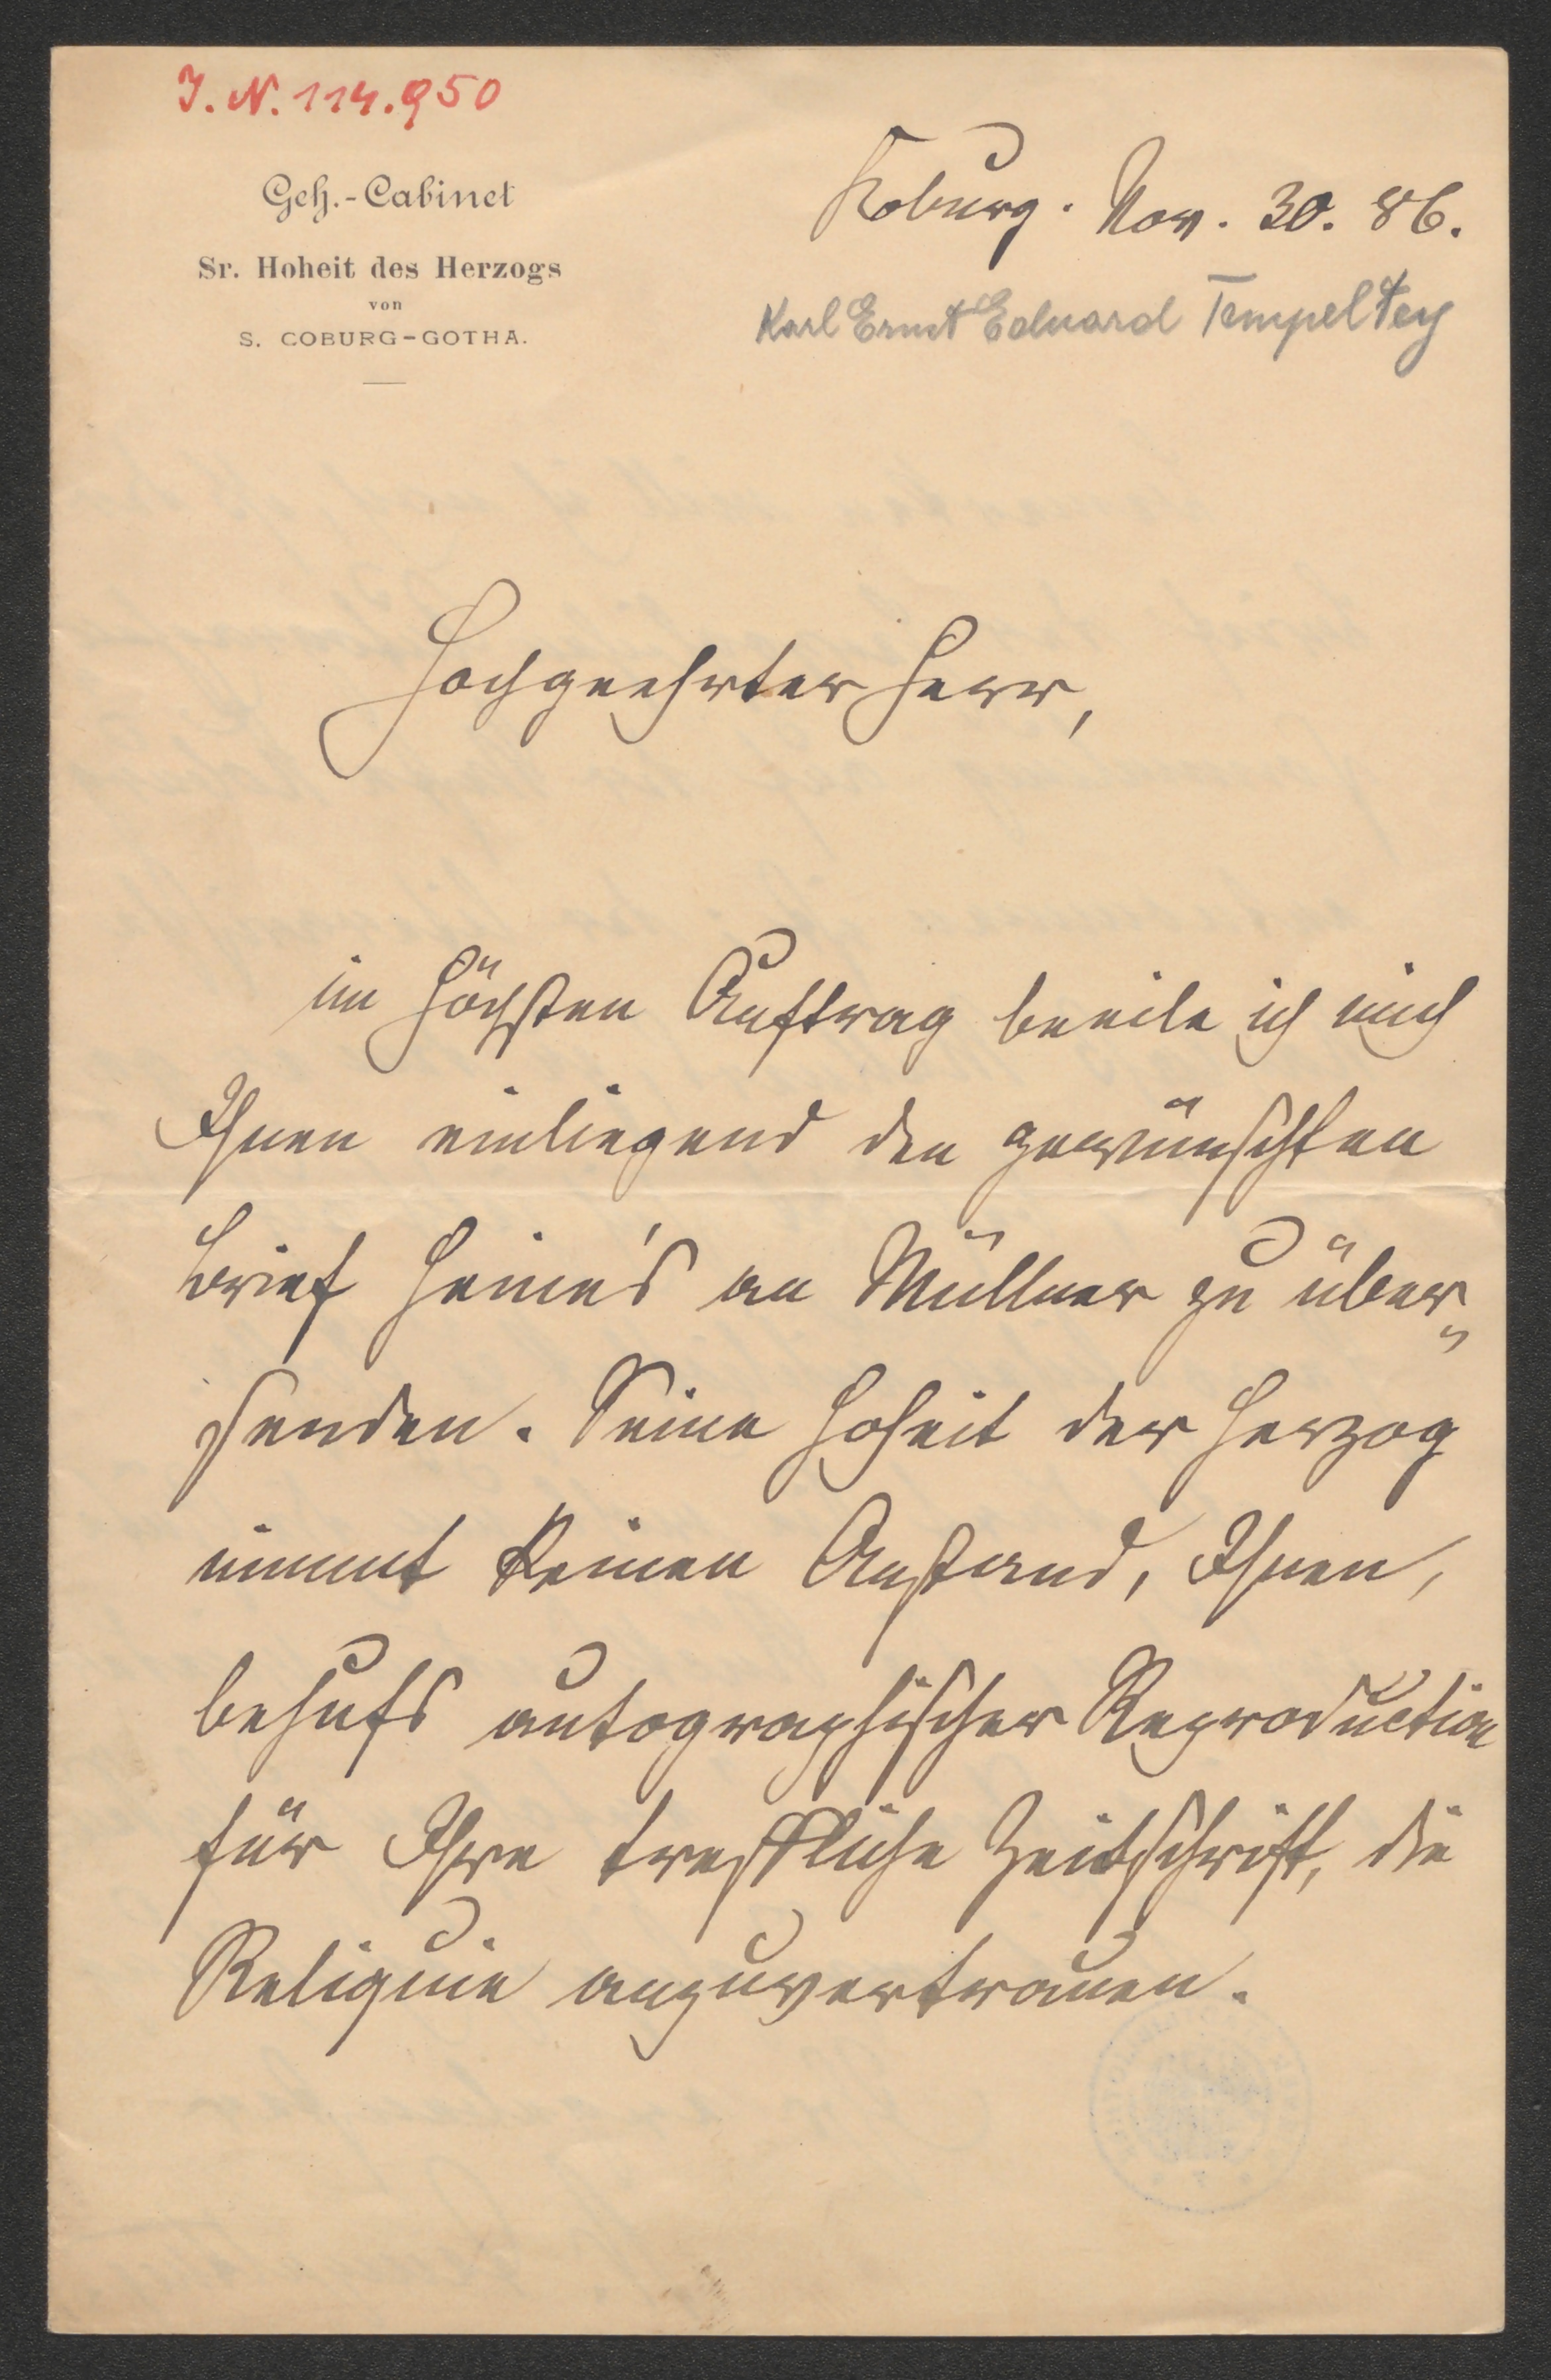 I. N. 114.950
Geh.-Cabinet
Sr. Hoheit des Herzogs
von
S. COBURG-GOTHA.
Koburg. Nov. 30. 86.
Karl Ernst Eduard Tempeltey
Hochgeehrter Herr,
im höchsten Auftrag beeile ich mich
Ihnen einliegend den gewünschten
Brief Heine's an Müllner zu über-
senden. Seine Hoheit der Herzog
nimmt keinen Anstand, Ihnen,
behufs autographischer Reproduction
für Ihre treffliche Zeitschrift, die
Reliquie anzuvertrauen.